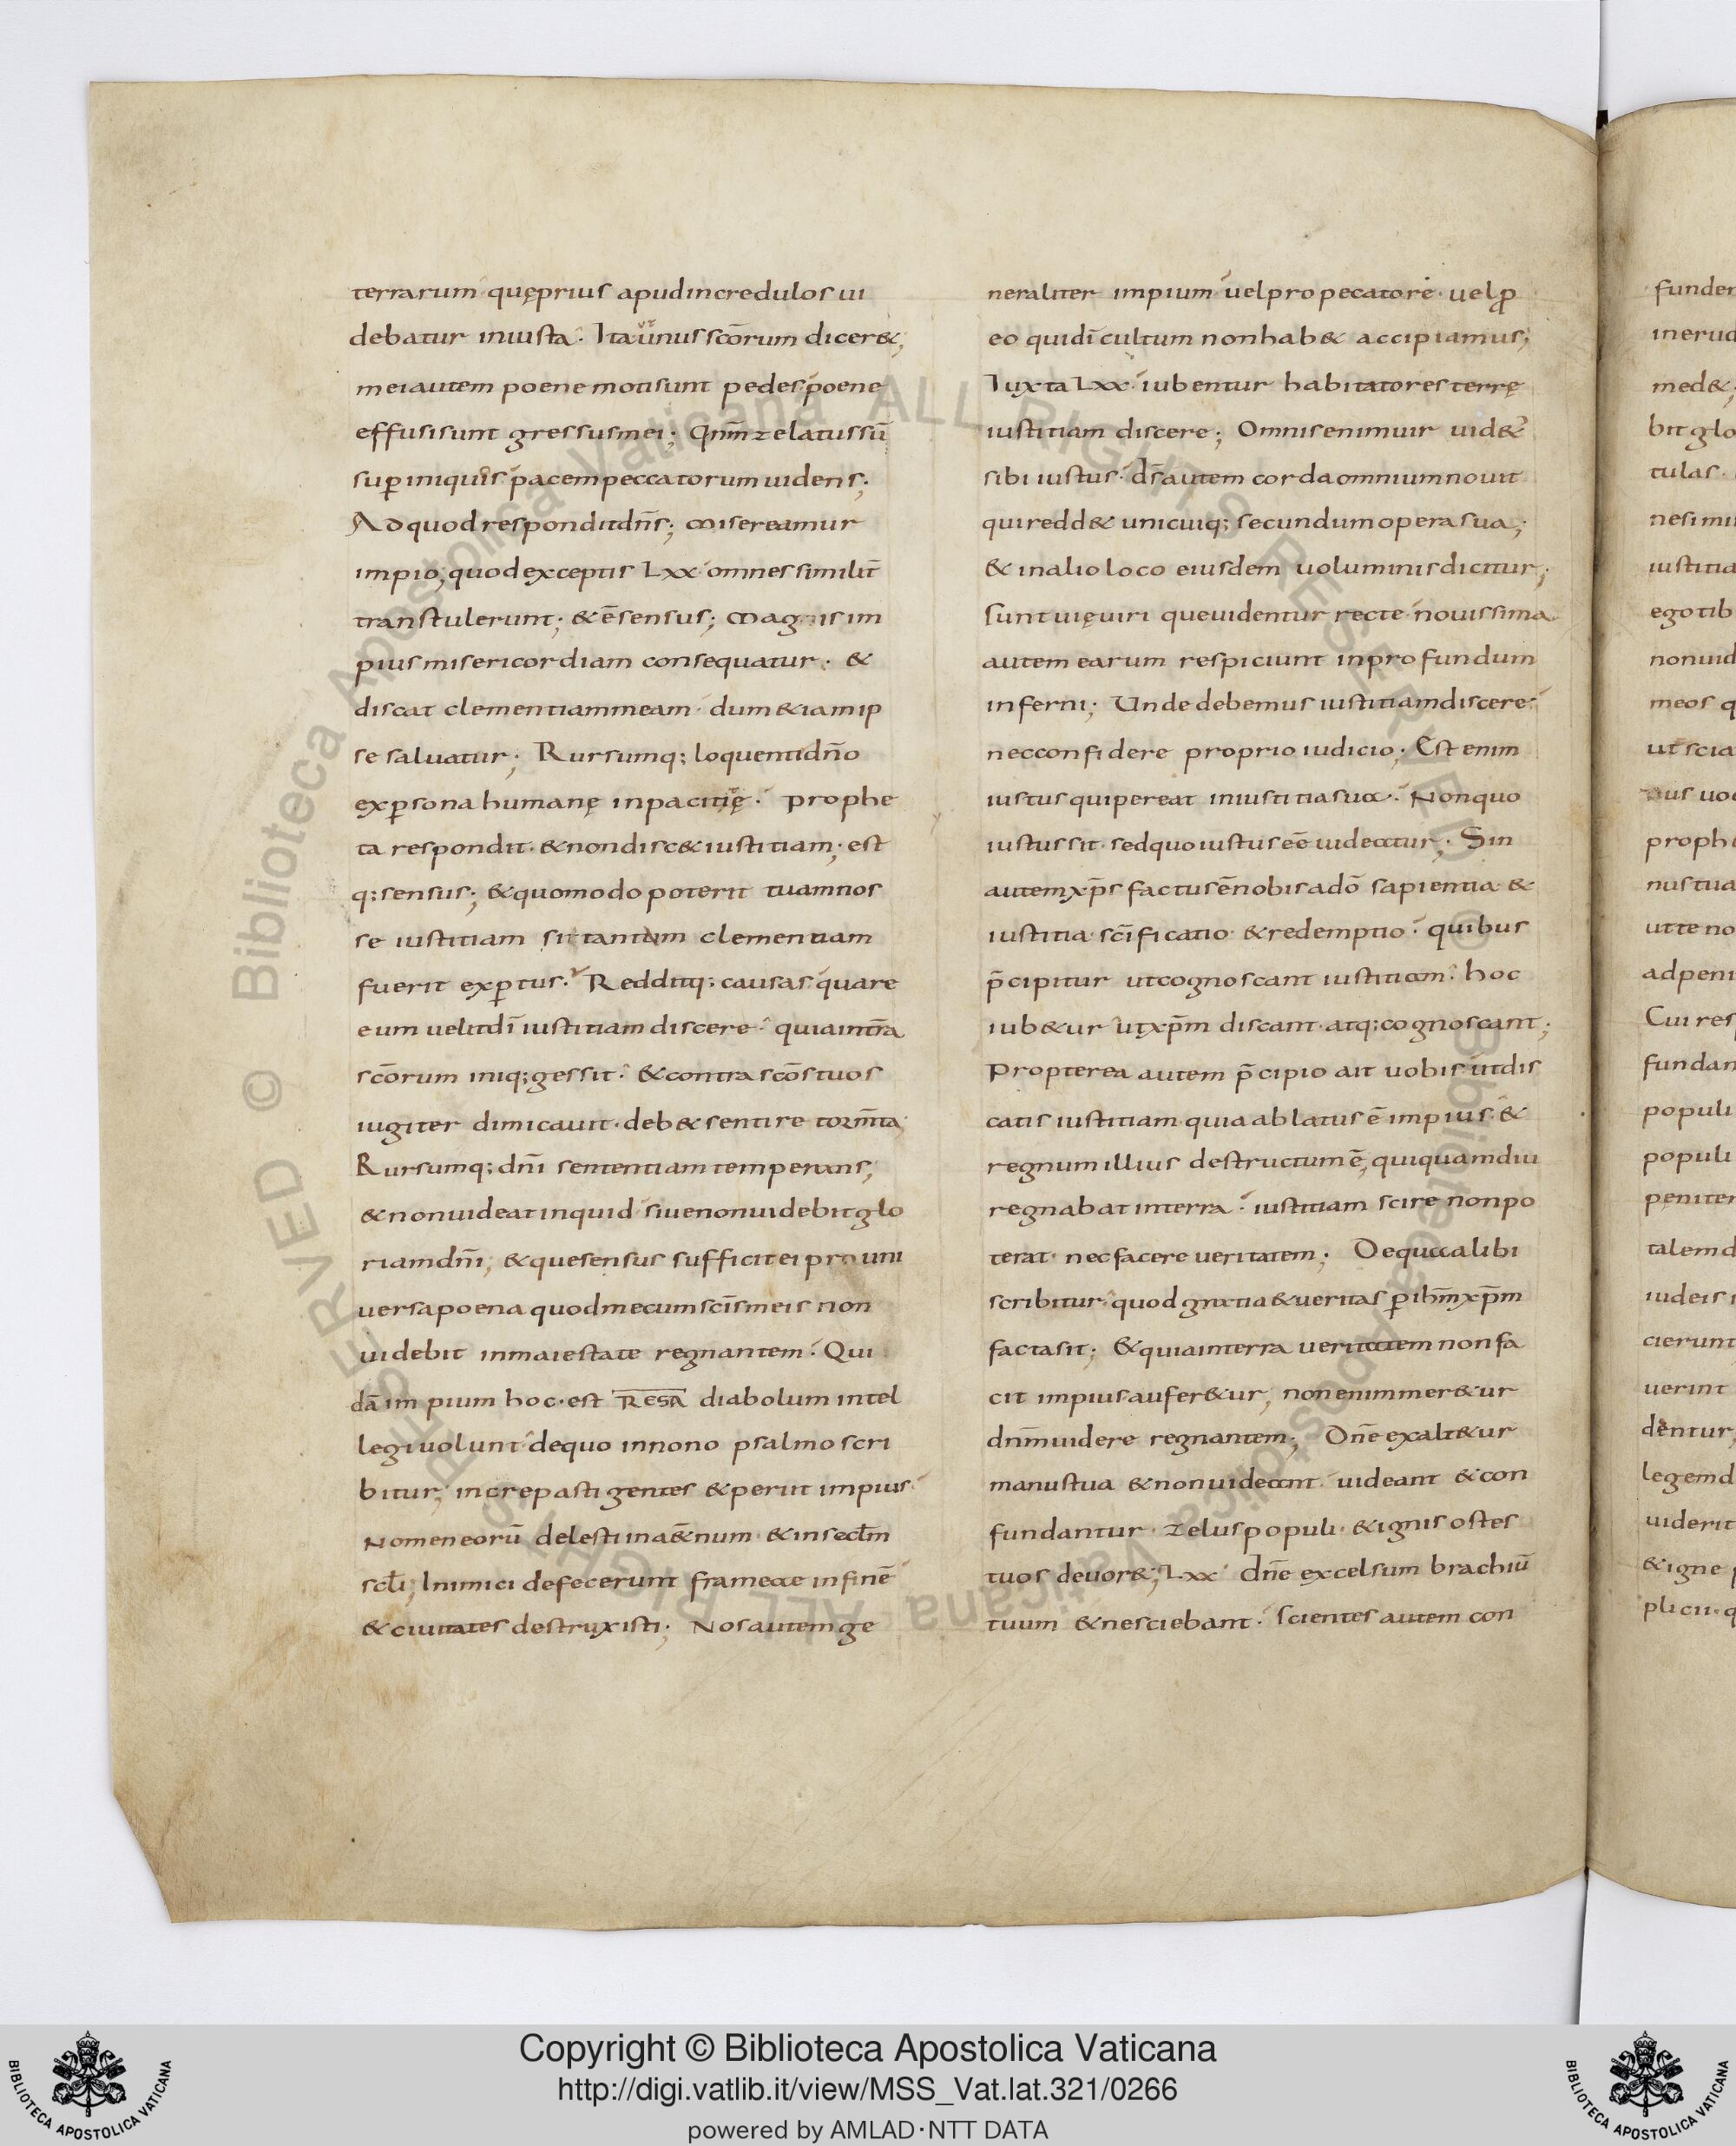 terrarum quęprius apudincredulos ui
debatur iniusta. Itaunus scōrum dicer&;
meiautem poene motisunt pedes poene
effusisunt gressusmei; Qnm̄ zelatussū
sup iniquis pacempeccatorum uidens;
Adquodresponditdn̄s; misereamur
impio; quodexceptis Lxx omnes similit̄
transtulerunt; &ē sensus; magis im
pius misericordiam consequatur; &
discat clementiammeam dum &iamip
se saluatur; Rursumq; loquentidn̄o
expsona humanę inpacitię prophe
ta respondit &nondisc& iustitiam; est
q; sensus; &quomodo poterit tuamnos
se iustitiam si tantum clementiam
fuerit exptus. Redditq; causas quare
eum uelitdī iustitiam discere quiaintr̄a
scōrum iniq; gessit. &contra scōs tuos
iugiter dimicauit deb& sentire torm̄ta
Rursumq; dn̄i sententiam temperans;
&nonuideat inquid siuenonuidebit glo
riamdn̄i; &quesensus sufficit ei pro uni
uersapoena quodmecum scīs meis non
uidebit inmaiestate regnantem. Qui
dā im pium hoc est diabolum intel
legi uolunt dequo innono psalmo scri
bitur; increpasti gentes &periit impius
Nomeneorū delesti ina&̄num &insecl̄m
scl̄i; Inimici defecerunt frameae infinē
&ciuitates destruxisti; Nosautem ge
neraliter impium uelpropecatore uelp
eo quidī cultum nonhab& accipiamus;
Iuxta Lxx iubentur habitatores terrę
iustitiam discere; Omnisenimuir uid&
sibi iustus ds̄autem cordaomniumnouit
quiredd& unicuiq; secundumopera sua;
& inalioloco eiusdem uoluminisdicitur;
sunt uięuiri queuidentur recte nouissima
autem earum respiciunt inprofundum
inferni; Unde debemus iustitiamdiscere
necconfidere proprio iudicio; Est enim
iustus quipereat iniustitiasua. Nonquo
iustus sit sedquoiustus eē uideatur; Sin
autemxp̄s factus ēnobis adō sapientia &
iustitia scīficatio &redemptio quibus
p̄cipitur utcognoscant iustitiam hoc
iub&ur utxp̄m discant atq; cognoscant;
Propterea autem p̄cipio ait uobis utdis
catis iustitiam quiaablatus ē impius &
regnum illius destructum ē, quiquamdiu
regnabat interra iustitiam scire nonpo
terat necfacere ueritatem; Dequoalibi
scribitur quod gratia &ueritas p ihm̄xp̄m
factasit; &quiainterra ueritatem nonfa
cit impius aufer&ur, nonenimmer&ur
dnm̄uidere regnantem; Dn̄e exalt&ur
manustua &nonuideant uideant &con
fundantur Zeluspopuli &ignis ostes
tuos deuor&; Lxx Dn̄e excelsum brachiū
tuum &nesciebant scientes autem con
funder
inerud
med&;
bitglo
tulas
nesimi
iustitia
egotib
nonuid
meos q
ut scia
nus tua
utteno
adpeni
Cui res
fundan
populi
populi
peniten
talemd
iudeis
cierunt
uerint
dentur
legemd
uiderit
&igne
plicii q
Copyright © Biblioteca Apostolica Vaticana
http://digi.vatlib.it/view/MSS_Vat.lat.321/0266
powered by AMLAD·NTT DATA
BIBLIOTECA APOSTOLICA VATICANA
BIBLIOTECA APOSTOLICA VATICANA